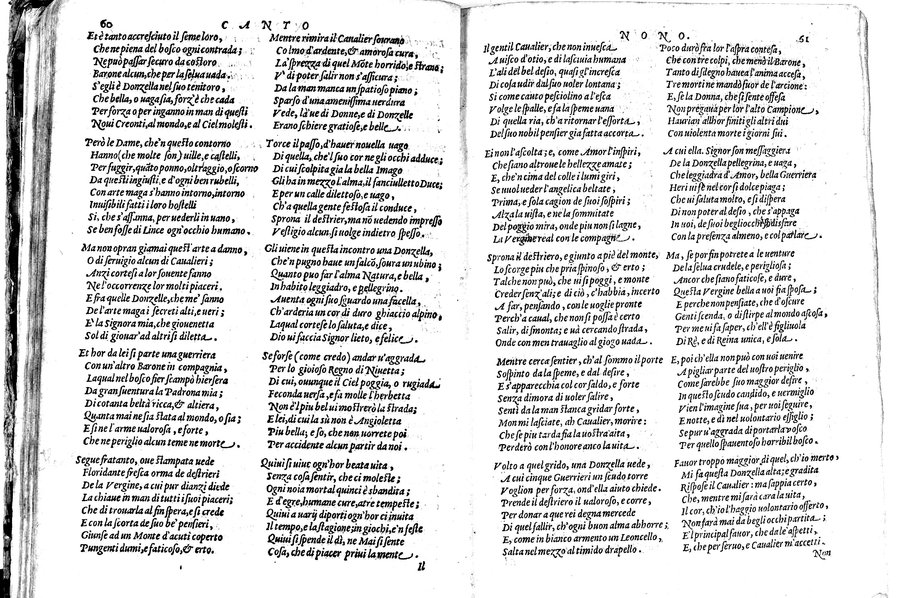 60
CANTO
Et è tanto accresciuto il seme loro,
Che ne piena del bosco ogni contrada;
Ne può passar securo da costoro
Barone alcun, che per la selua uada.
S'egli è Donzella nel suo tenitoro,
Che bella, o uaga sia, forz'è che cada
Per forza o per inganno in man di questi
Noui Creonti, al mondo, e al Ciel molesti.
Però le Dame, ch'en questo contorno
Hanno (che molte son) uille, e castelli,
Per fuggir, quãto ponno, oltraggio, o scorno
Da questi ingiusti, e d'ogni ben rubelli,
Con arte maga s'hanno intorno, intorno
Inuisibili fatti i loro hostelli
Si, che s'affanna, per uederli in uano,
Se ben fosse di Lince ogn'occhio humano.
Ma non opran giamai quest'arte a danno,
O di seruigio alcun di Caualieri;
Anzi cortesi a lor souente fanno
Ne l'occorrenze lor molti piaceri.
E fra quelle Donzelle, che me' sanno
De l'arte maga i secreti alti, e ueri;
E' la Signora mia, che giouenetta
Sol di giouar ad altri si diletta.
Et hor da lei si parte una guerriera
Con un'altro Barone in compagnia,
Laqual nel bosco fier scampò hiersera
Da gran suentura la Padrona mia;
Di cotanta beltà ricca, & altiera,
Quanta mai ne sia stata al mondo, o sia;
E si ne l'arme ualorosa, e forte,
Che ne periglio alcun teme ne morte.
Segue fratanto, oue stampata uede
Floridante fresca orma de destrieri
De la Vergine, a cui pur dianzi diede
La chiaue in man di tutti i suoi piaceri;
Che di trouarla al fin spera, e si crede
E con la scorta de suo be' pensieri,
Giunse ad un Monte d'acuti coperto
Pungenti dumi, e faticoso, & erto.
Mentre rimira il Caualier sourano
Colmo d'ardente, & amorosa cura,
La sprezza di quel Mõte horrido, e strano;
V' di poter salir non s'assicura;
Da la man manca un spatioso piano;
Sparso d'una amenissima uerdura
Vede, là 'ue di Donne, e di Donzelle
Erano schiere gratiose, e belle.
Torce il passo, d'hauer nouella uago
Di quella, che'l suo cor ne gli occhi adduce;
Di cui scolpita gia la bella Imago
Gli ha in mezzo l'alma, il fanciulletto Duce;
E per un calle dilettoso, e uago,
Ch'a quella gente festosa il conduce,
Sprona il destrier, ma nõ uedendo impresso
Vestigio alcun, si uolge indietro spesso.
Gli uiene in questa incontro una Donzella,
Che'n pugno haue un falcõ, soura un ubino;
Quanto puo far l'alma Natura, e bella,
In habito leggiadro, e pellegrino.
Auenta ogni suo sguardo una facella,
Ch'arderia un cor di duro ghiaccio alpino,
Laqual cortese lo saluta, e dice,
Dio ui faccia Signor lieto, e felice.
Se forse (come credo) andar u'aggrada
Per lo gioioso Regno di Niuetta;
Di cui, ouunque il Ciel poggia, o rugiada
Feconda uersa, e fa molle l'herbetta
Non è'l piu bel ui mostrerò la strada;
E lei, di cui la sù non è Angioletta
Piu bella; e so, che non uorrete poi
Per accidente alcun partir da noi.
Quiui si uiue ogn'hor beata uita,
Senza cosa sentir, che ci moleste;
Ogni noia mortal quinci è sbandita;
E d'egre, humane cure, atre tempeste;
Quiui a uarij diporti ogn'hor ci inuita
Il tempo, e la stagione, in giochi, e'n feste
Quiui si spende il dì, ne Mai si sente
Cosa, che di piacer priui la mente.
Il
NONO.
61
Il gentil Caualier, che non inuesca
Auisco d'otio, e di lasciuia humana
L'ali del bel desio, quasi gl'incresca
Di cosa udir dal suo uoler lontana;
Si come cauto pesciolino a l'esca
Volge le spalle, e fa la speme uana
Di quella ria, ch'a ritornar l'essorta,
Del suo nobil pensier gia fatta accorta.
Ei non l'ascolta; e, come Amor l'inspiri,
Che siano altroue le bellezze amate;
E, che'n cima del colle i lumi giri,
Se uuol ueder l'angelica beltate,
Prima, e sola cagion de suoi sospiri;
Alza la uista, e ne la sommitate
Del poggio mira, onde piu non si lagne,
La Vergine real con le compagne.
Sprona il destriero, e giunto a piè del monte,
Lo scorge piu che pria spinoso, & erto;
Tal che non può, che ui si poggi, e monte
Creder senz'ali; e di ciò, c'habbia, incerto
A far, pensando, con le uoglie pronte
Perch'a caual, che non si possa è certo
Salir, di smonta; e uà cercando strada,
Onde con men trauaglio al giogo uada.
Mentre cerca sentier, ch'al sommo il porte
Sospinto da la speme, e dal desire,
E s'apparecchia col cor saldo, e forte
Senza dimora di uoler salire,
Sentì da la man stanca gridar forte,
Mon mi lasciate, ah Caualier, morire:
Che se piu tarda fia la uostra aita,
Perderò con l'honore anco la uita.
Volto a quel grido, una Donzella uede,
A cui cinque Guerrieri un scudo torre
Voglion per forza, ond'ella aiuto chiede.
Prende il destriero il ualoroso, e corre,
Per donar a que rei degna mercede
Di quel fallir, ch'ogni buon alma abborre;
E, come in bianco armento un Leoncello,
Salta nel mezzo al timido drapello.
Poco durò fra lor l'aspra contesa,
Che con tre colpi, che menò il Barone,
Tanto di sdegno hauea l'anima accesa,
Tre morti ne mandò fuor de l'arcione:
E, se la Donna, che si sente offesa
Non pregaua per lor l'alto Campione,
Haurian allhor finiti gli altri dui
Con uiolenta morte i giorni sui.
A cui ella. Signor son messaggiera
De la Donzella pellegrina, e uaga,
Che leggiadra d'Amor, bella Guerriera
Heri ui fè nel cor si dolce piaga;
Che ui saluta molto, e si dispera
Di non poter al desio, che s'appaga
In uoi, de suoi begliocchi sodisfare
Con la presenza almeno, e col parlare.
Ma, se por fin potrete a le uenture
De la selua crudele, e perigliosa;
Ancor che siano faticose, e dure,
Questa Vergine bella a uoi fia sposa;
E perche non pensiate, che d'oscure
Genti scenda, o di stirpe al mondo ascosa,
Per me ui fa saper, ch'ell'è figliuola
Di Rè, e di Reina unica, e sola.
E, poi ch'ella non può con uoi uenire
A pigliar parte del uostro periglio,
Come sarebbe suo maggior desire,
In questo scudo candido, e uermiglio
Vien l'imagine sua, per uoi seguire,
E notte, e dì nel uolontario essiglio;
Se pur u'aggrada di portarla uosco
Per quello spauentoso horribil bosco.
Fauor troppo maggior di quel, ch'io merto,
Mi fa questa Donzella alta; e gradita
Rispose il Caualier: ma sappia certo,
Che, mentre mi sarà cara la uita,
Il cor, ch'io l'haggio uolontario offerto,
Non farà mai da begli occhi partita;
E'l principal fauor, che da le' aspetti,
E, che per seruo, e Caualier m'accetti.
Non